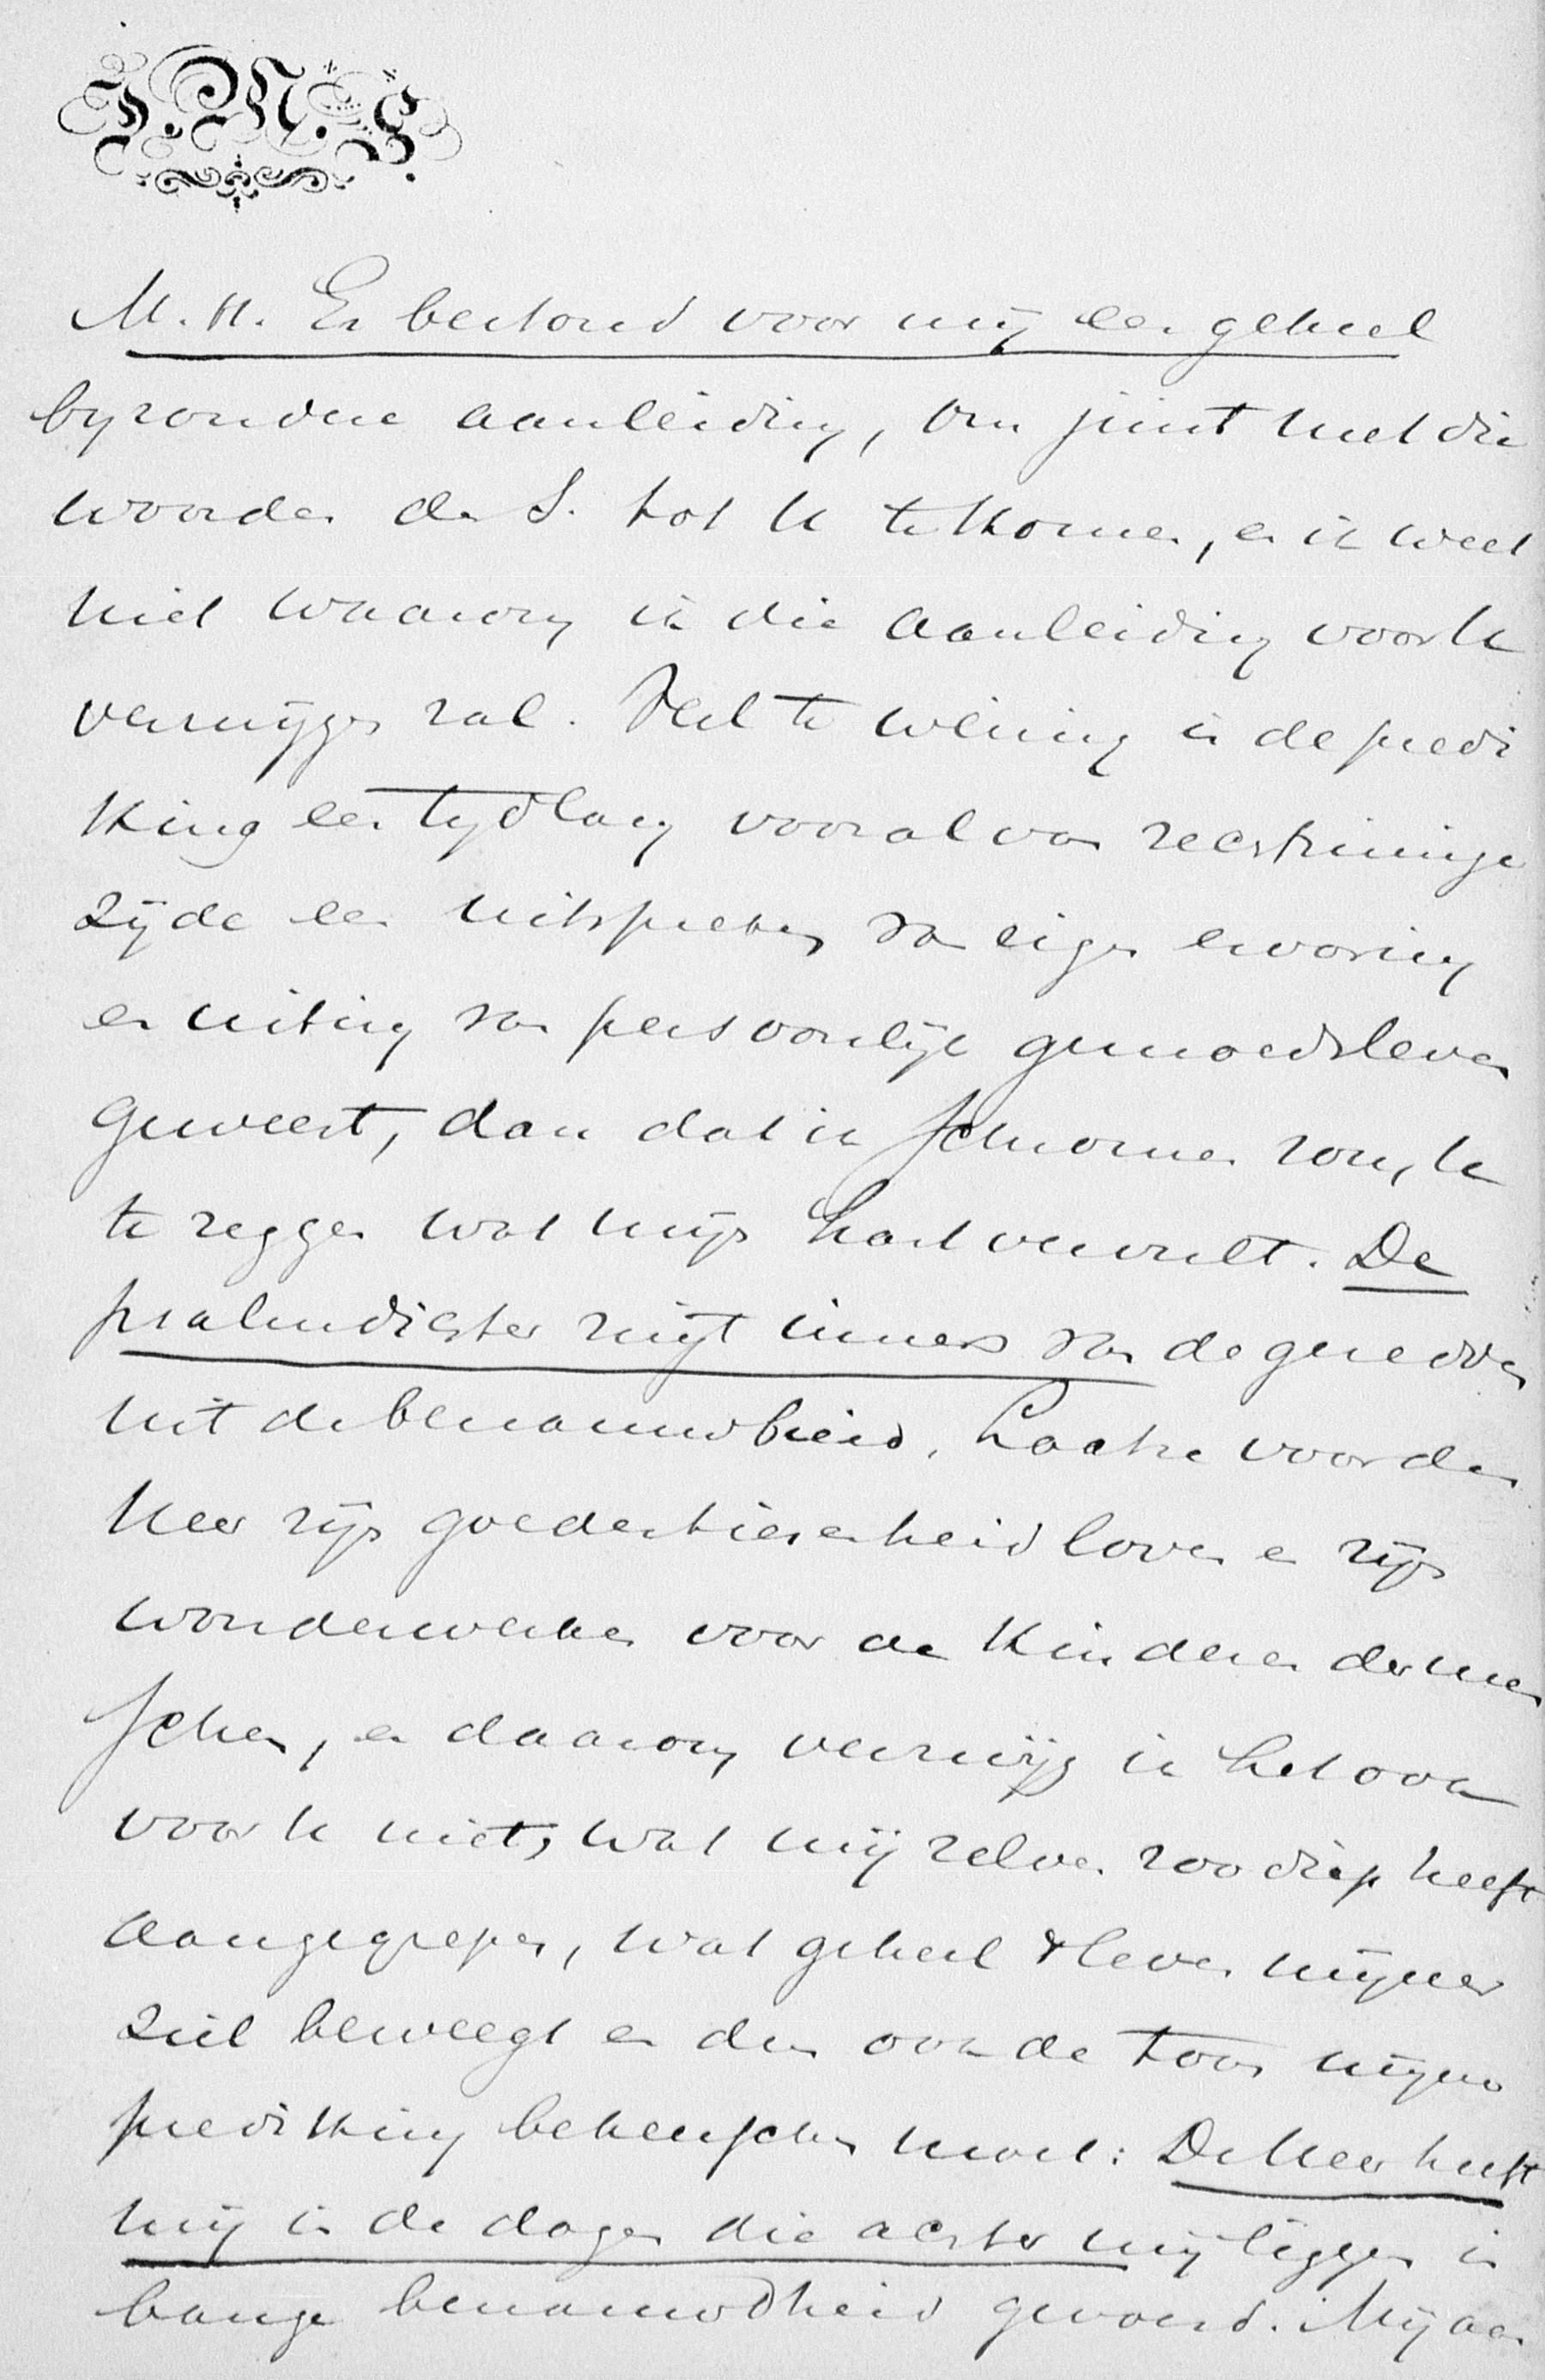 J. N. S.
M. H. Er bestond voor mij een geheel
byzondere aanleiding, om juist met die
woorden der S. tot U te komen, en ik weet
niet waarom ik die aanleiding voor U
verzwijgen zal. Veel te weinig is de predi
king een tydlang vooral van rechtzinnige
zijde een uitspreken van eigen ervaring
en uiting van persoonlijk gemoedsleven
geweest, dan dat ik schromen zou, U
te zeggen wat mijn hart vervult. De
psalmdichter zingt immers van de geredden
uit de benauwdheid. Laat ze voor den
Heer zijn goedertierenheid loven en zijn
wonderwerken voor de kinderen der men
schen, en daarom verzwijg ik het ook
voor U niet, wat mij zelven zoo diep heeft
aangegrepen, wat geheel 't leven mijner
ziel beweegt en dus ook de toon mijner
prediking beheerschen moet: De Heer heeft
mij in de dagen die achter mij liggen in
bange benauwdheid gevoerd. Mij aan